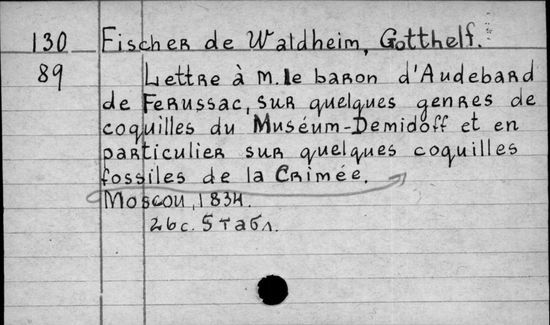 130 Fischer de Waldheim, Gotthelf.
89 Lettre à m. le baron d'Audebard
de Ferussac, sur quelques genres de
coquilles du Muséum-Demidoff et en
particulier sur quelques coquilles
fossiles de la Crimée.
Moscou, 1834.
26 с. 5 табл.